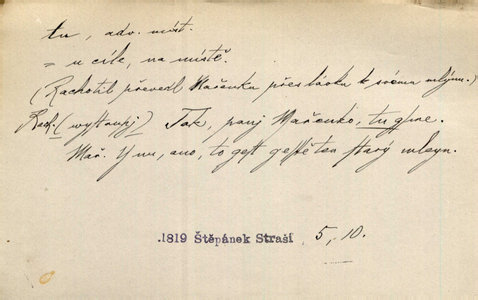 tu, adv. míst.
= u cíle, na místě.
(Rachotil převedl Mařenku přes lávku k svému mlýnu.)
Rach. (wystaupj) Tak, panj Mařenko, tu gsme.
Mař. Y nu, ano, to gest gesstě ten starý mleyn.
.1819 Štěpánek Straší 5, 10.